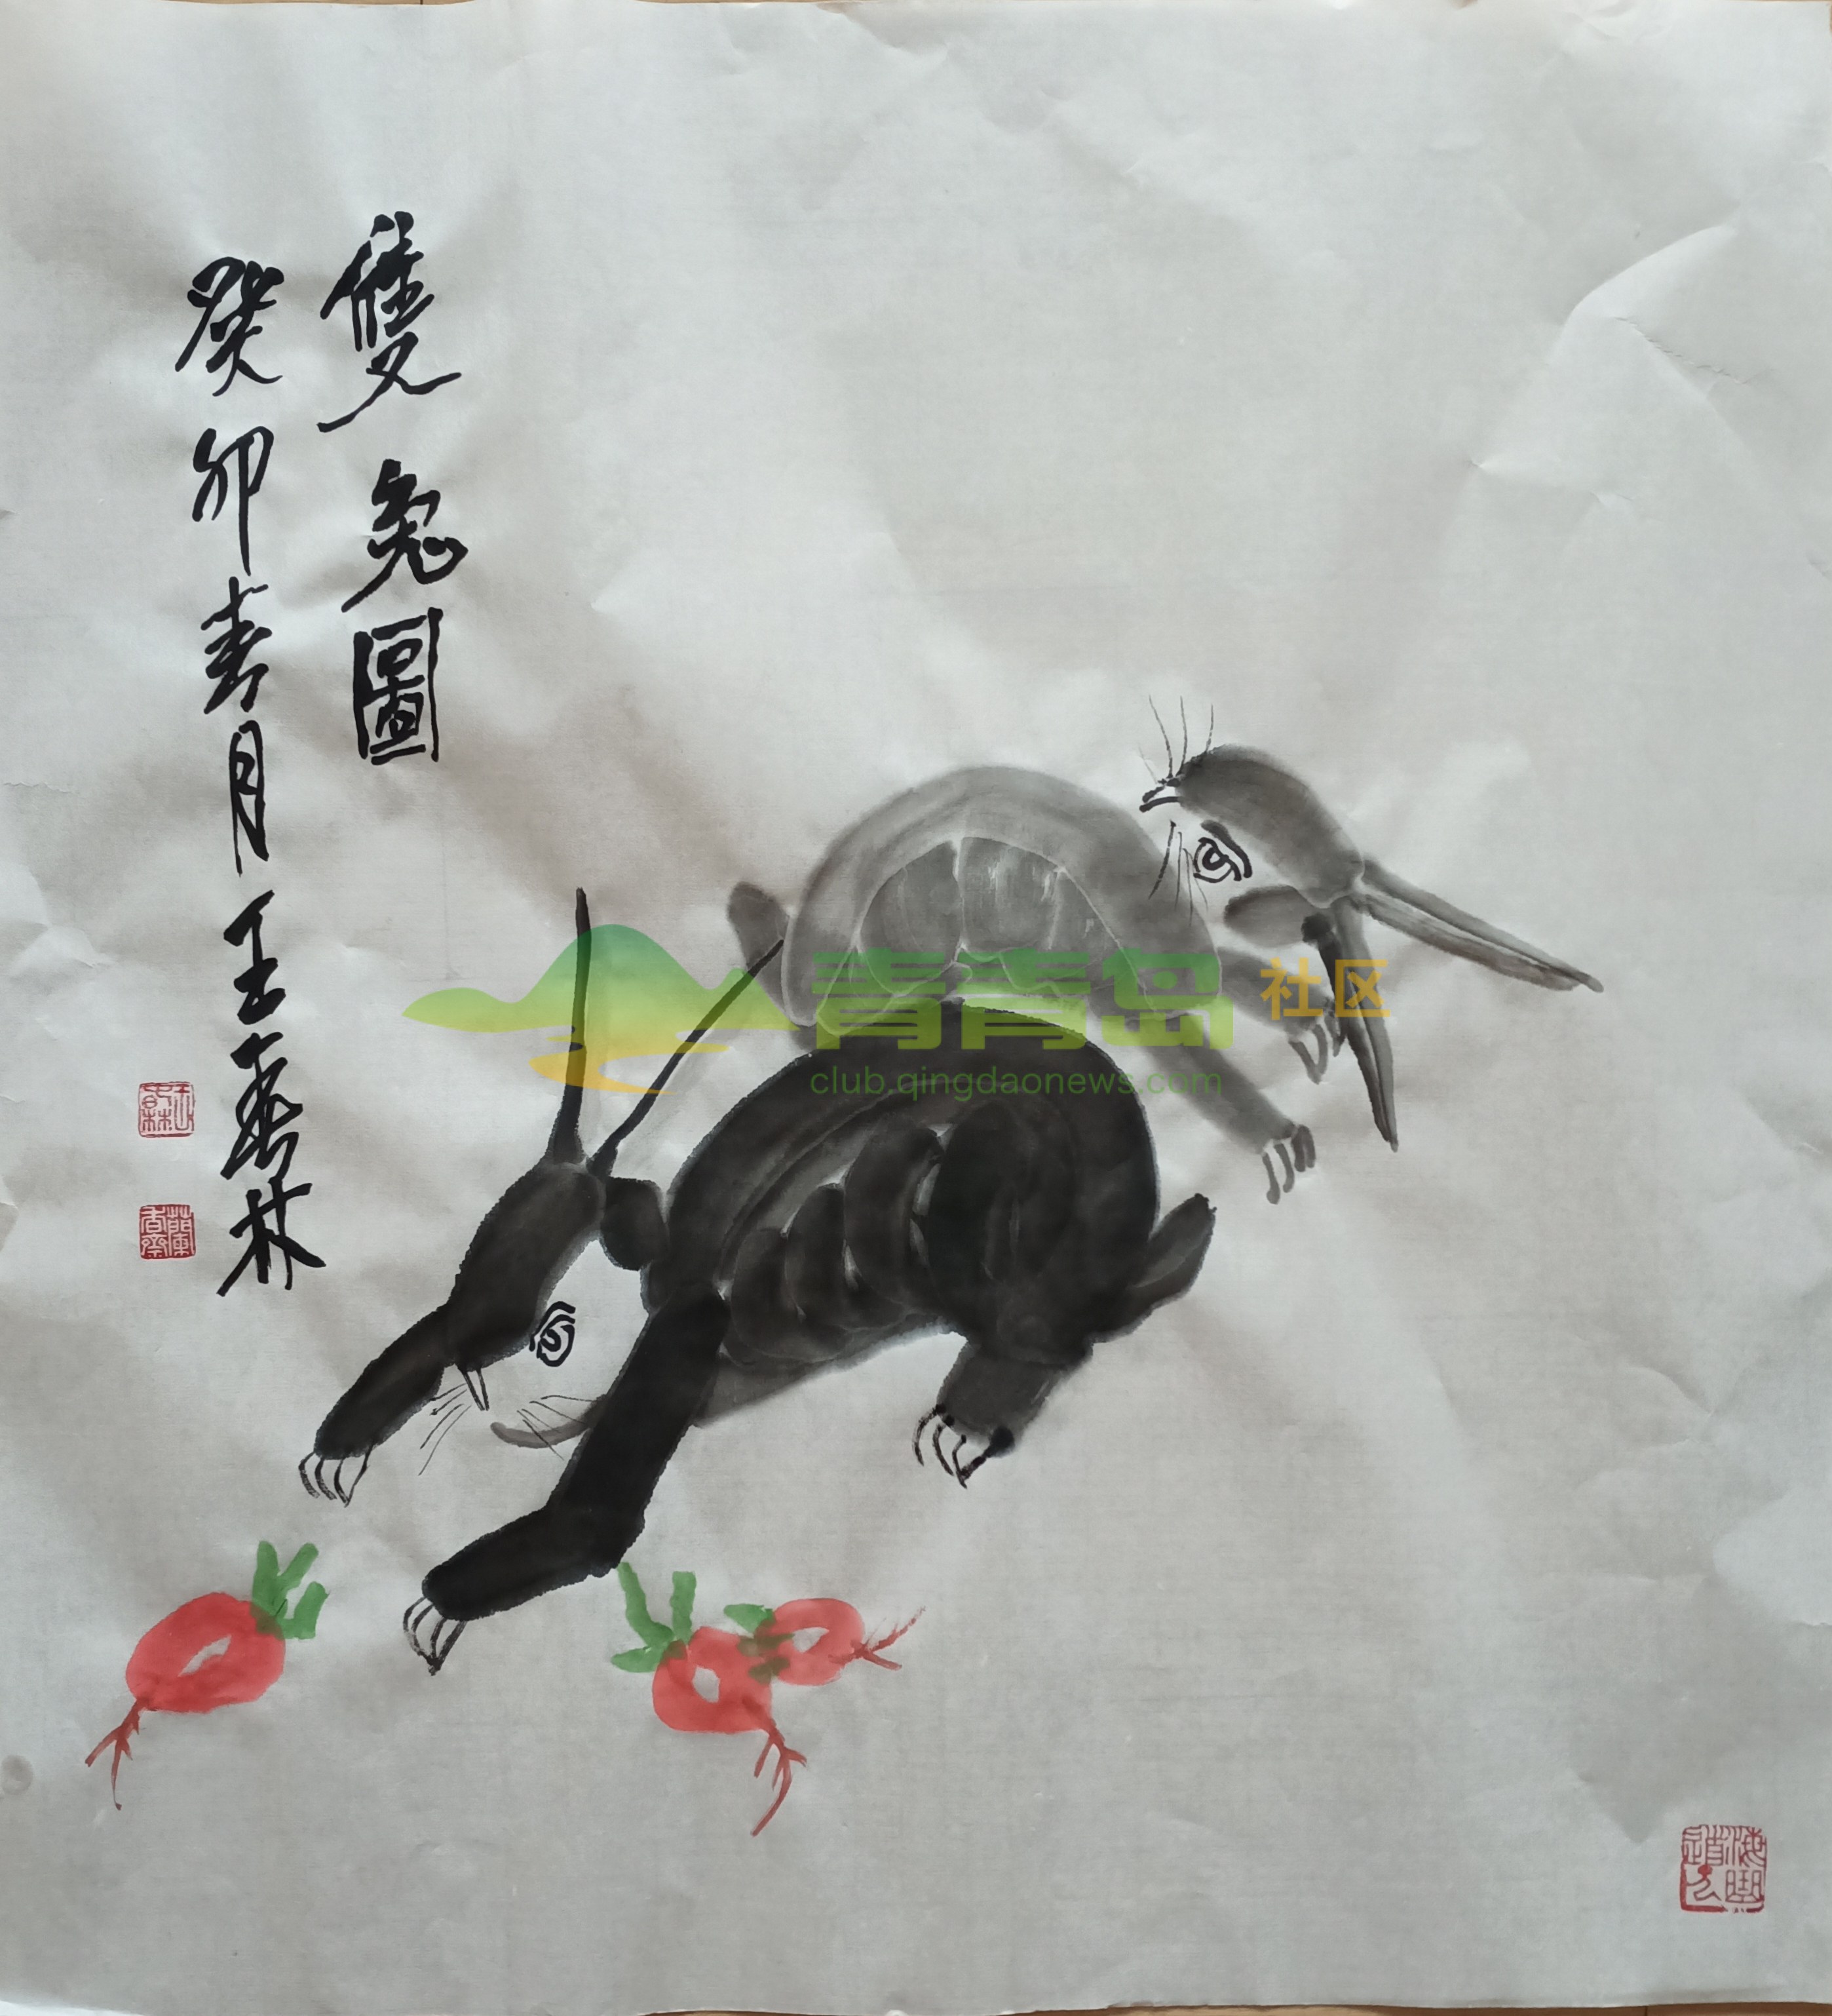 雙兔圖
癸卯春月王 林
蘭香齋
青青岛社区
club.qingdaonews.com